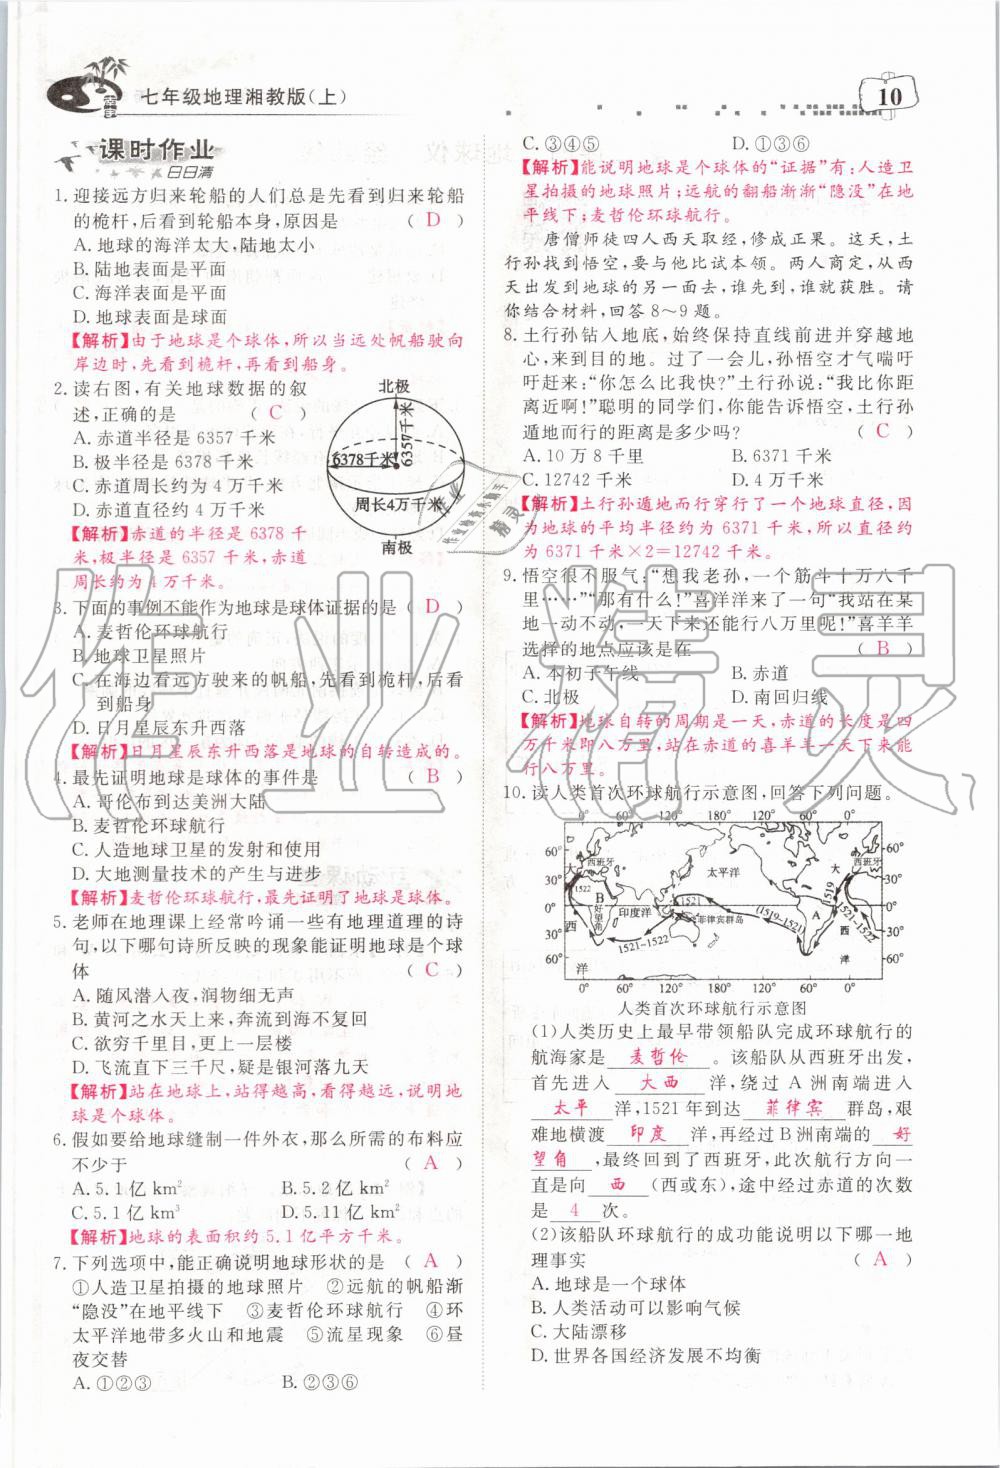 七年级地理湘教版(上)
10
课时作业
日日清
1. 迎接远方归来轮船的人们总是先看到归来轮船
的桅杆,后看到轮船本身,原因是 ( D )
A. 地球的海洋太大,陆地太小
B. 陆地表面是平面
C. 海洋表面是平面
D. 地球表面是球面
【解析】由于地球是个球体,所以当远处帆船驶向
岸边时,先看到桅杆,再看到船身。
2. 读右图,有关地球数据的叙
述,正确的是 ( C )
A. 赤道半径是 6357 千米
B. 极半径是 6378 千米
C. 赤道周长约为 4 万千米
D. 赤道直径约为 4 万千米
【解析】赤道的半径是 6378 千
米,极半径是 6357 千米,赤道
周长约为 4 万千米。
北极
6357千米
6378千米
周长4万千米
南极
3. 下面的事例不能作为地球是球体证据的是 ( D )
A. 麦哲伦环球航行
B. 地球卫星照片
C. 在海边看远方驶来的帆船,先看到桅杆,后看
到船身
D. 日月星辰东升西落
【解析】日月星辰东升西落是地球的自转造成的。
4. 最先证明地球是球体的事件是 ( B )
A. 哥伦布到达美洲大陆
B. 麦哲伦环球航行
C. 人造地球卫星的发射和使用
D. 大地测量技术的产生与进步
【解析】麦哲伦环球航行,最先证明了地球是球体。
5. 老师在地理课上经常吟诵一些有地理道理的诗
句,以下哪句诗所反映的现象能证明地球是个球
体 ( C )
A. 随风潜入夜,润物细无声
B. 黄河之水天上来,奔流到海不复回
C. 欲穷千里目,更上一层楼
D. 飞流直下三千尺,疑是银河落九天
【解析】站在地球上,站得越高,看得越远,说明地
球是个球体。
6. 假如要给地球缝制一件外衣,那么所需的布料应
不少于 ( A )
A. 5.1 亿 km² B. 5.2 亿 km²
C. 5.1 亿 km³ D. 5.11 亿 km²
【解析】地球的表面积约 5.1 亿平方千米。
7. 下列选项中,能正确说明地球形状的是 ( A )
①人造卫星拍摄的地球照片 ②远航的帆船渐
渐“隐没”在地平线下 ③麦哲伦环球航行 ④环
太平洋地带多火山和地震 ⑤流星现象 ⑥昼
夜交替
A. ①②③ B. ②③⑥
C. ③④⑤ D. ①②⑥
【解析】能说明地球是个球体的“证据”有:人造卫
星拍摄的地球照片;远航的翻船渐渐“隐没”在地
平线下;麦哲伦环球航行。
唐僧师徒四人西天取经,修成正果。这天,土
行孙找到悟空,要与他比试本领。两人商定,从西
天出发到地球的另一面去,谁先到,谁就获胜。请
你结合材料,回答 8～9 题。
8. 土行孙钻入地底,始终保持直线前进并穿越地
心,来到目的地。过了一会儿,孙悟空才气喘吁
吁赶来:“你怎么比我快?”土行孙说:“我比你距
离近啊!”聪明的同学们,你能告诉悟空,土行孙
遁地而行的距离是多少吗? ( C )
A. 10 万 8 千里 B. 6371 千米
C. 12742 千米 D. 4 万千米
【解析】土行孙遁地而行穿行了一个地球直径,因
为地球的平均半径约为 6371 千米,所以直径约
为 6371 千米×2=12742 千米。
9. 悟空很不服气:“想我老孙,一个筋斗十万八千
里……”“那有什么!”喜洋洋来了一句“我站在某
地一动不动,一天下来还能行八万里呢!”喜羊羊
选择的地点应该是在 ( B )
A. 本初子午线 B. 赤道
C. 北极 D. 南回归线
【解析】地球自转的周期是一天,赤道的长度是四
万千米即八万里,站在赤道的喜羊羊一天下来能
行八万里。
10. 读人类首次环球航行示意图,回答下列问题。
0° 60° 120° 180° 120° 60° 0°
60° 30° 0° 30° 60°
西班牙 太平洋 西班牙
1522 B 好望角 印度洋 1521 菲律宾群岛
1521-1522 (1519-1521) 1519 A
西 洋 西 洋
60° 30° 0° 30° 60°
0° 60° 120° 180° 120° 60° 0°
人类首次环球航行示意图
(1)人类历史上最早带领船队完成环球航行的
航海家是 麦哲伦 。该船队从西班牙出发,
首先进入 大西 洋,绕过 A 洲南端进入
太平 洋,1521 年到达 菲律宾 群岛,艰
难地横渡 印度 洋,再经过 B 洲南端的 好
望角 ,最终回到了西班牙,此次航行方向一
直是向 西 (西或东),途中经过赤道的次数
是 4 次。
(2)该船队环球航行的成功能说明以下哪一地
理事实 ( A )
A. 地球是一个球体
B. 人类活动可以影响气候
C. 大陆漂移
D. 世界各国经济发展不均衡
作业精灵